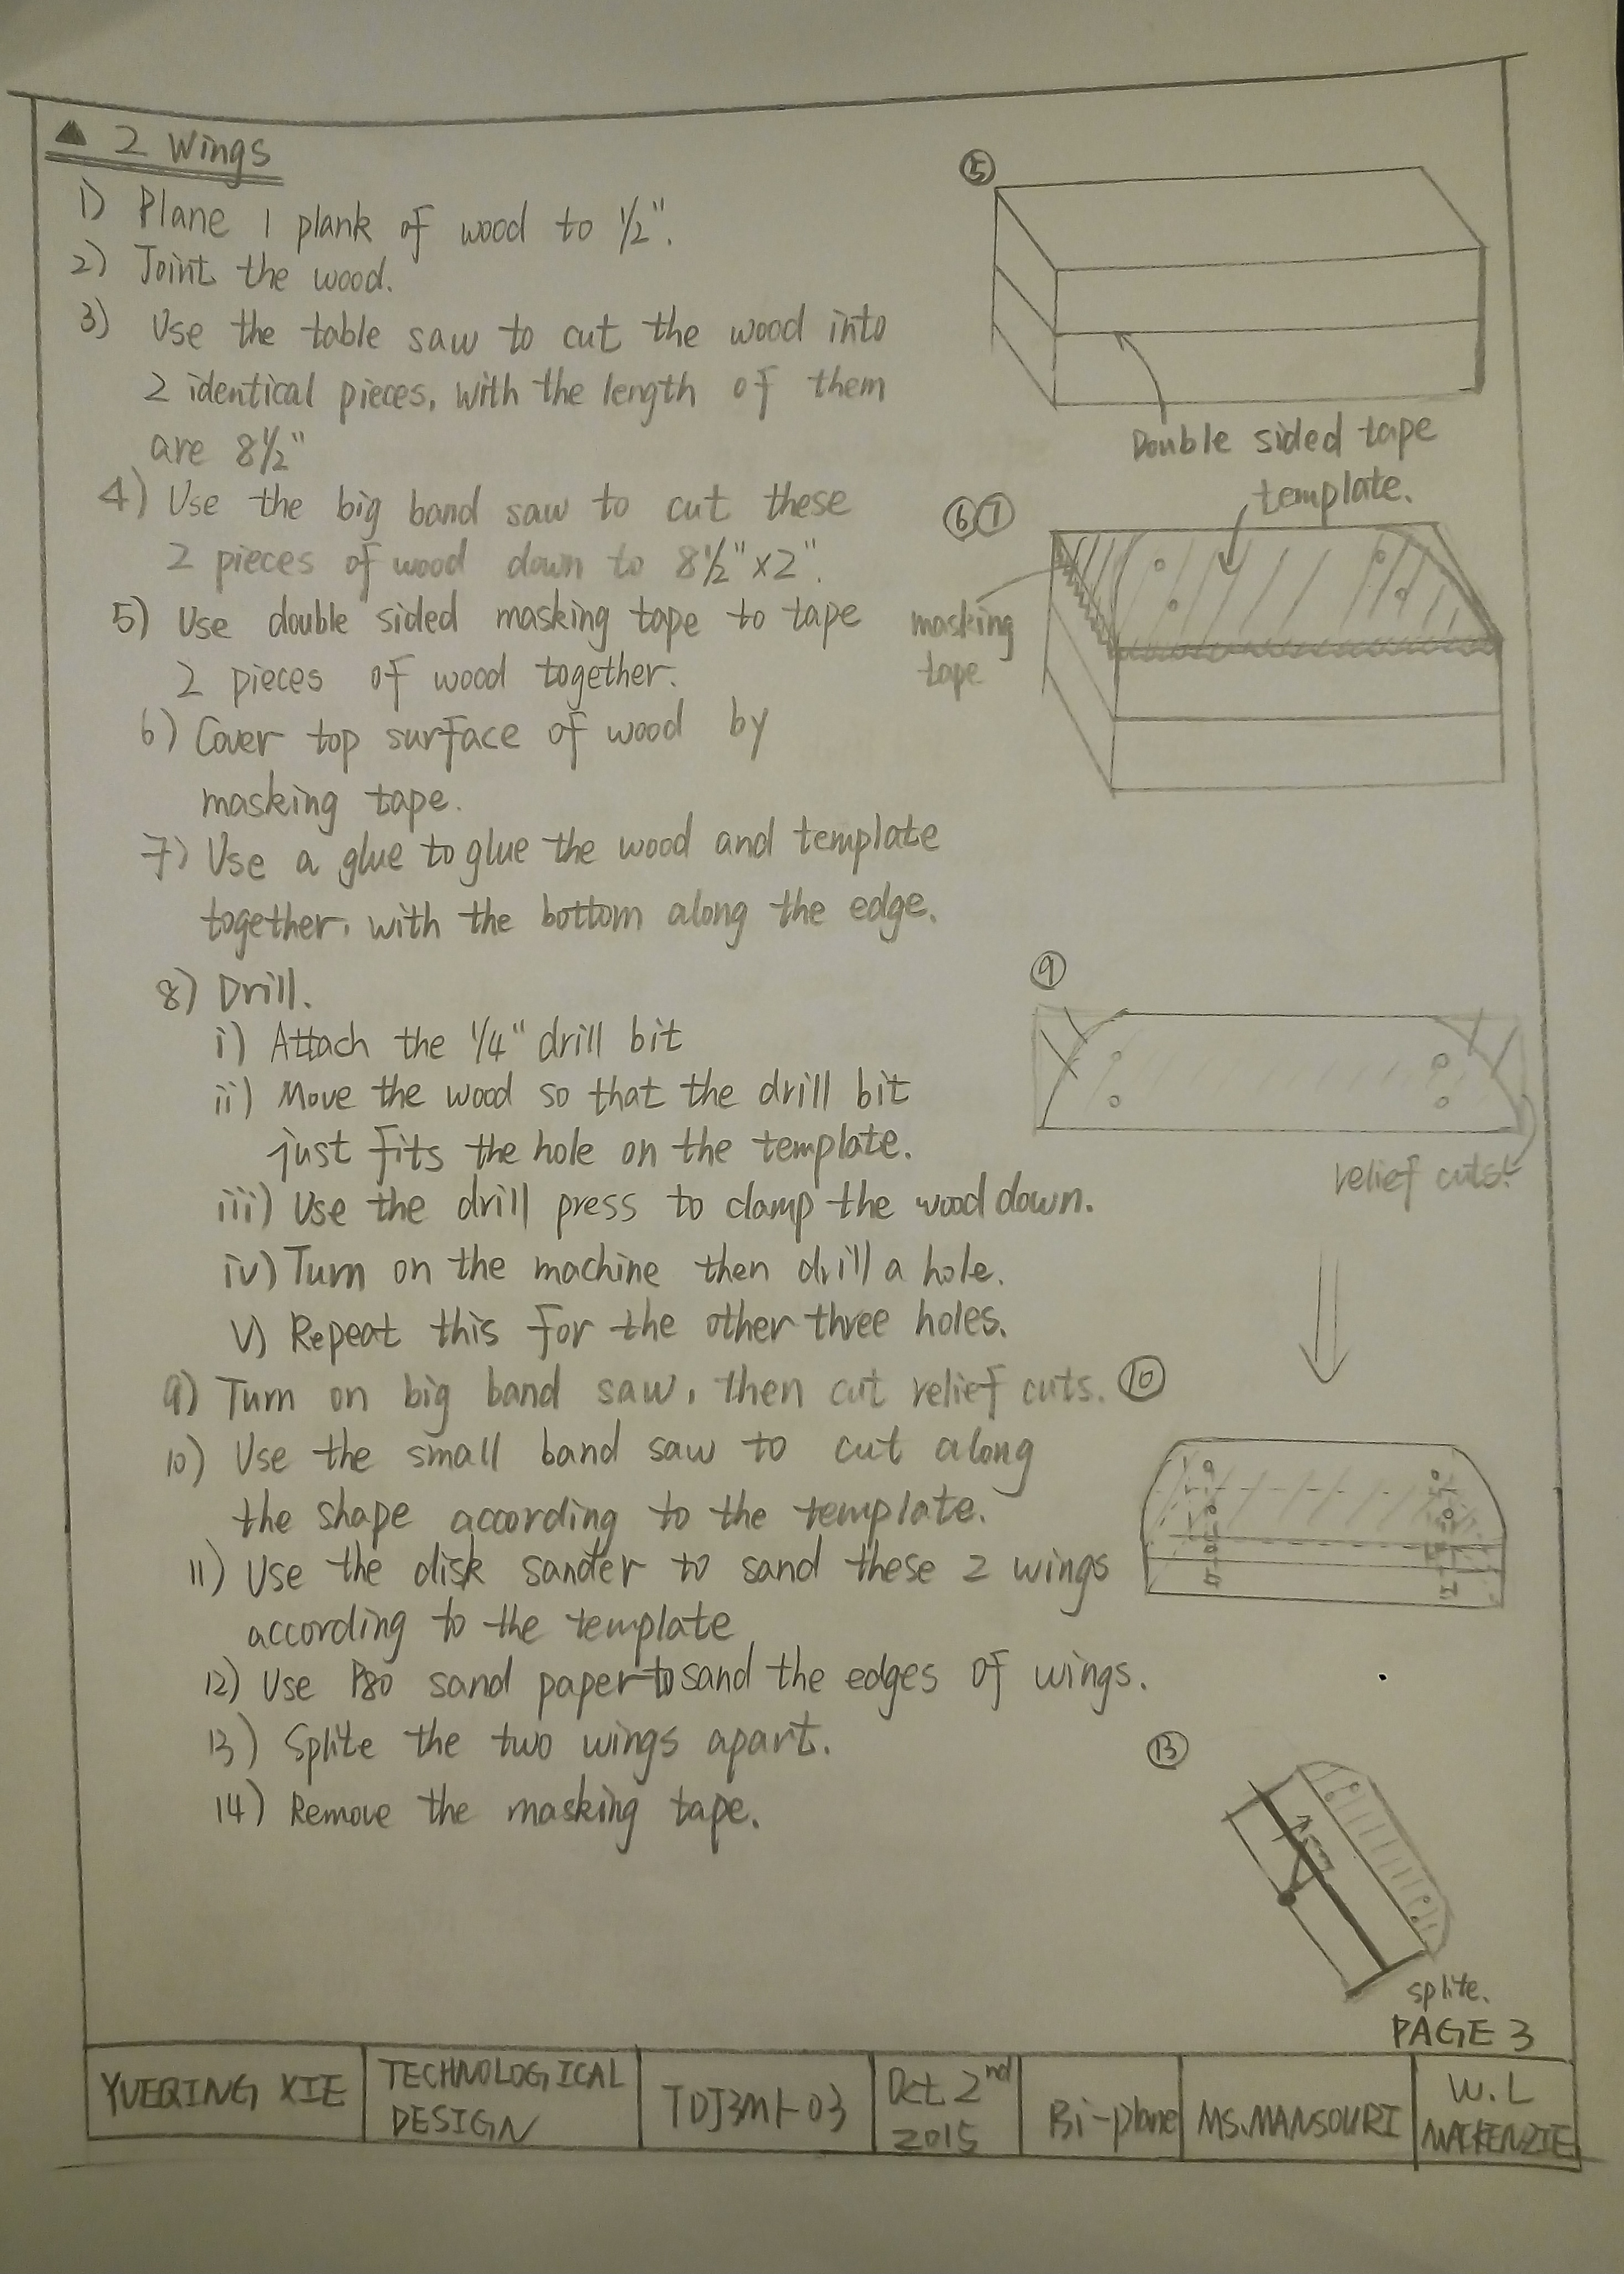 ▲ 2 Wings
1) Plane 1 plank of wood to 1/2".
2) Joint the wood.
3) Use the table saw to cut the wood into
2 identical pieces, with the length of them
are 8 1/2"
4) Use the big band saw to cut these
2 pieces of wood down to 8 1/2" x 2".
5) Use double sided masking tape to tape
2 pieces of wood together.
6) Cover top surface of wood by
masking tape.
7) Use a glue to glue the wood and template
together, with the bottom along the edge.
8) Drill.
i) Attach the 1/4" drill bit
ii) Move the wood so that the drill bit
just fits the hole on the template.
iii) Use the drill press to clamp the wood down.
iv) Turn on the machine then drill a hole.
v) Repeat this for the other three holes.
9) Turn on big band saw, then cut relief cuts.
10) Use the small band saw to cut along
the shape according to the template.
11) Use the disk sander to sand these 2 wings
according to the template
12) Use P80 sand paper to sand the edges of wings.
13) Splite the two wings apart.
14) Remove the masking tape.
⑤
Double sided tape
⑥⑦
template.
masking
tape
⑨
relief cuts.
⑩
⑬
splite.
PAGE 3
YUEQING XIE
TECHNOLOGICAL
DESIGN
TDJ3M1-03
Oct. 2nd
2015
Bi-plane
MS.MANSOURI
W.L
MACKENZIE